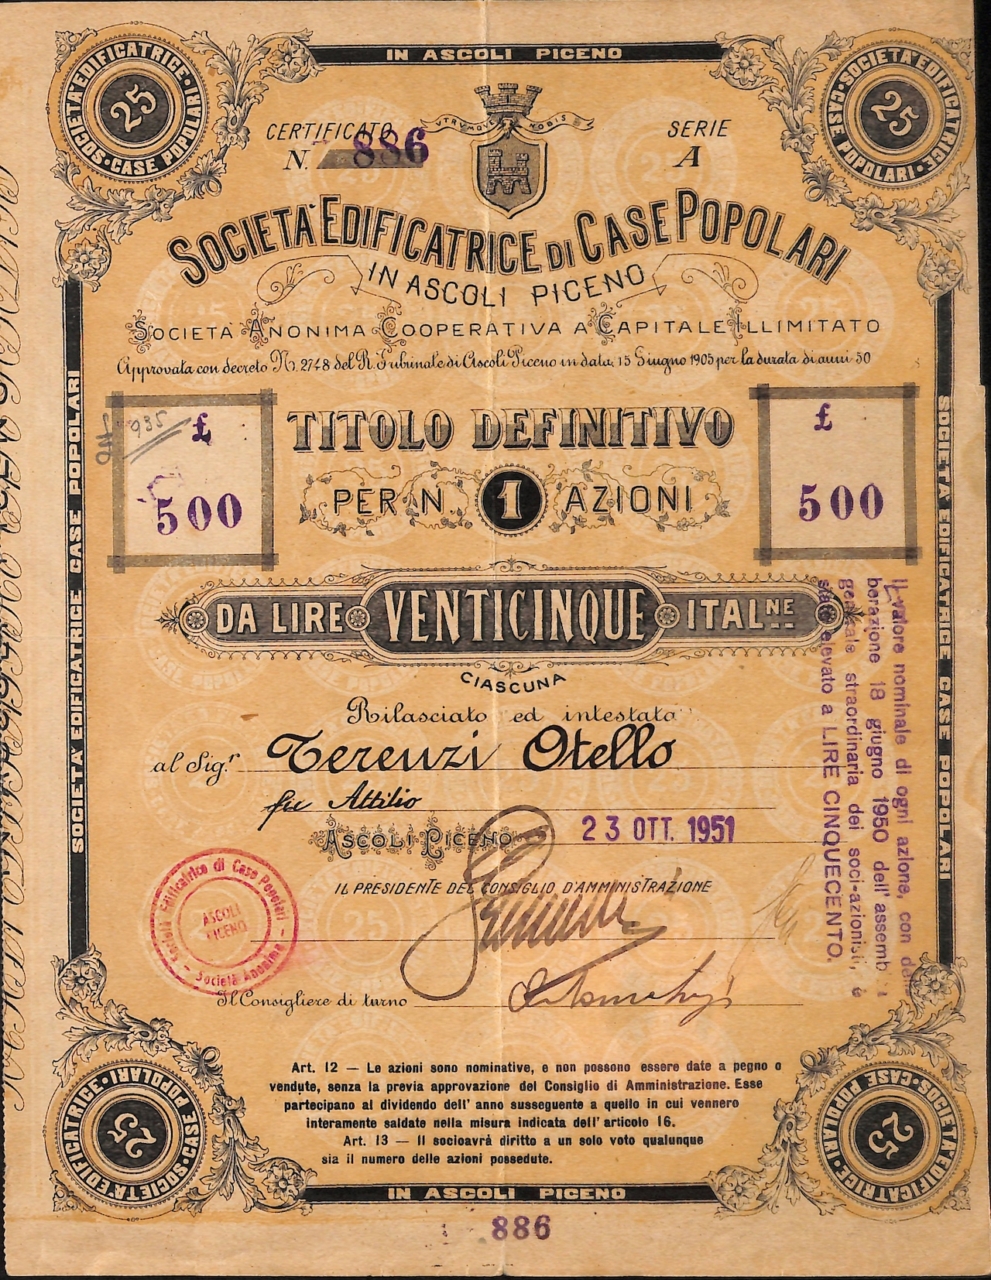 IN ASCOLI PICENO
SOCIETÀ EDIFICATRICE · CASE POPOLARI ·
25
SOCIETÀ EDIFICATRICE · CASE POPOLARI ·
25
CERTIFICATO
N. 886
UTRUMQUE NOBIS
SERIE
A
SOCIETÀ EDIFICATRICE DI CASE POPOLARI
IN ASCOLI PICENO
SOCIETÀ ANONIMA COOPERATIVA A CAPITALE ILLIMITATO
Approvata con decreto N. 2748 del R. Tribunale di Ascoli Piceno in data 15 Giugno 1905 per la durata di anni 50
935
£
500
TITOLO DEFINITIVO
PER N. 1 AZIONI
£
500
DA LIRE VENTICINQUE ITAL.NE
CIASCUNA
Rilasciato ed intestato
al Sig.r Terenzi Otello
fu Attilio
ASCOLI PICENO 23 OTT. 1951
IL PRESIDENTE DEL CONSIGLIO D'AMMINISTRAZIONE
Il Consigliere di turno
Società Edificatrice di Case Popolari – Società Anonima –
ASCOLI
PICENO
Il valore nominale di ogni azione, con
berazione 18 giugno 1950 dell'
straordinaria dei soci-azionisti, è
elevato a LIRE CINQUECENTO.
SOCIETÀ EDIFICATRICE CASE POPOLARI
SOCIETÀ EDIFICATRICE CASE POPOLARI
Art. 12 — Le azioni sono nominative, e non possono essere date a pegno o
vendute, senza la previa approvazione del Consiglio di Amministrazione. Esse
partecipano al dividendo dell' anno susseguente a quello in cui vennero
interamente saldate nella misura indicata dell' articolo 16.
Art. 13 — Il socioavrà diritto a un solo voto qualunque
sia il numero delle azioni possedute.
SOCIETÀ EDIFICATRICE · CASE POPOLARI ·
25
SOCIETÀ EDIFICATRICE · CASE POPOLARI ·
25
IN ASCOLI PICENO
886